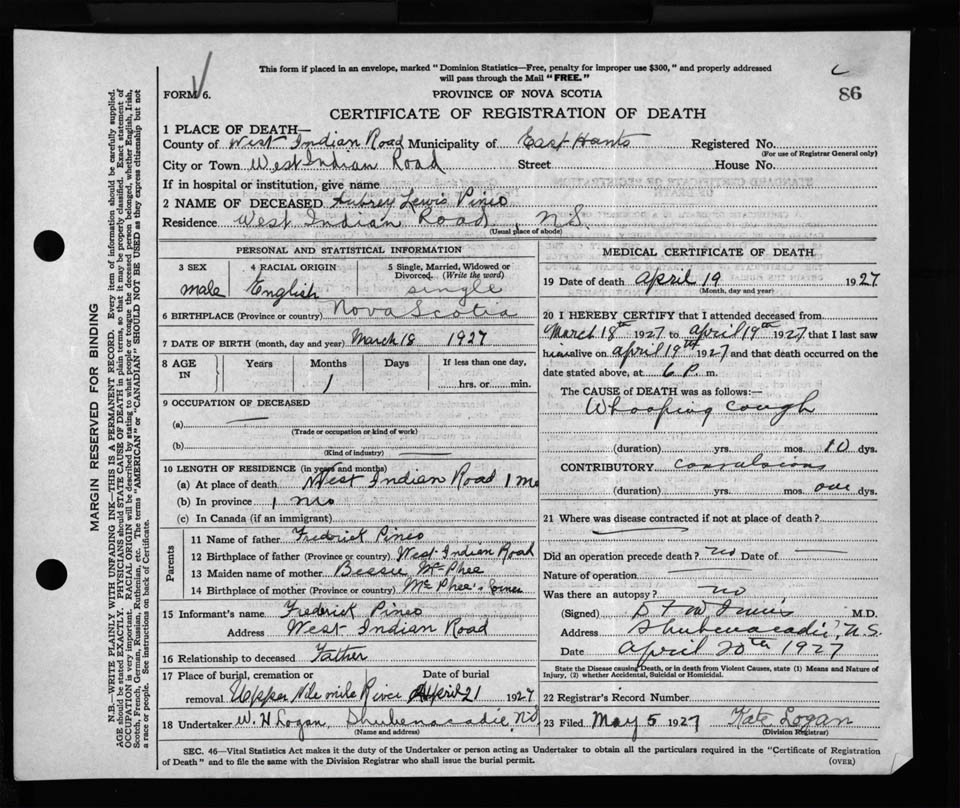 This form if placed in an envelope, marked "Dominion Statistics—Free, penalty for improper use $300," and properly addressed
will pass through the Mail "FREE."
FORM 6.
PROVINCE OF NOVA SCOTIA
86
CERTIFICATE OF REGISTRATION OF DEATH
1 PLACE OF DEATH—
County of West Indian Road Municipality of East Hants Registered No.
(For use of Registrar General only)
City or Town West Indian Road Street House No.
If in hospital or institution, give name
2 NAME OF DECEASED Aubrey Lewis Pineo
Residence West Indian Road, N.S.
(Usual place of abode)
PERSONAL AND STATISTICAL INFORMATION
3 SEX
male
4 RACIAL ORIGIN
English
5 Single, Married, Widowed or
Divorced. (Write the word)
single
6 BIRTHPLACE (Province or country) Nova Scotia
7 DATE OF BIRTH (month, day and year) March 18 1927
8 AGE IN
Years Months Days If less than one day,
1 hrs. or min.
9 OCCUPATION OF DECEASED
(a) —
(Trade or occupation or kind of work)
(b)
(Kind of industry)
10 LENGTH OF RESIDENCE (in years and months)
(a) At place of death West Indian Road 1 mo
(b) In province 1 mo
(c) In Canada (if an immigrant)
Parents
11 Name of father Frederick Pineo
12 Birthplace of father (Province or country) West Indian Road
13 Maiden name of mother Bessie McPhee
14 Birthplace of mother (Province or country) McPhee's
15 Informant's name Frederick Pineo
Address West Indian Road
16 Relationship to deceased Father
17 Place of burial, cremation or Date of burial
removal Upper Nine mile River April 21 1927
18 Undertaker W. H Logan Shubenacadie, N.S.
(Name and address)
MEDICAL CERTIFICATE OF DEATH
19 Date of death April 19 1927
(Month, day and year)
20 I HEREBY CERTIFY that I attended deceased from
March 18th 1927 to April 19th 1927 that I last saw
him alive on April 19th 1927 and that death occurred on the
date stated above, at 6 P. m.
The CAUSE of DEATH was as follows:—
Whooping cough
(duration) yrs. mos. 10 dys.
CONTRIBUTORY convulsions
(duration) yrs. mos. one dys.
21 Where was disease contracted if not at place of death?
Did an operation precede death? no Date of —
Nature of operation —
Was there an autopsy? no
(Signed) M.D.
Address Shubenacadie, N.S.
Date April 20th 1927
State the Disease causing Death, or in death from Violent Causes, state (1) Means and Nature of
Injury, (2) whether Accidental, Suicidal or Homicidal.
22 Registrar's Record Number
23 Filed May 5 1927 Kate Logan
(Division Registrar)
SEC. 46—Vital Statistics Act makes it the duty of the Undertaker or person acting as Undertaker to obtain all the particulars required in the "Certificate of Registration
of Death" and to file the same with the Division Registrar who shall issue the burial permit.
(OVER)
MARGIN RESERVED FOR BINDING
N.B.—WRITE PLAINLY WITH UNFADING INK—THIS IS A PERMANENT RECORD. Every item of information should be carefully supplied.
AGE should be stated EXACTLY. PHYSICIANS should STATE CAUSE OF DEATH in plain terms, so that it may be properly classified. Exact statement of
OCCUPATION is very important. RACIAL ORIGIN will be described by stating to what people or tongue the deceased person belonged, whether English, Irish,
Scotch, French, German, Russian, Ruthenian, etc. The terms "AMERICAN" or "CANADIAN" SHOULD NOT BE USED as they express citizenship but not
a race or people. See instructions on back of Certificate.